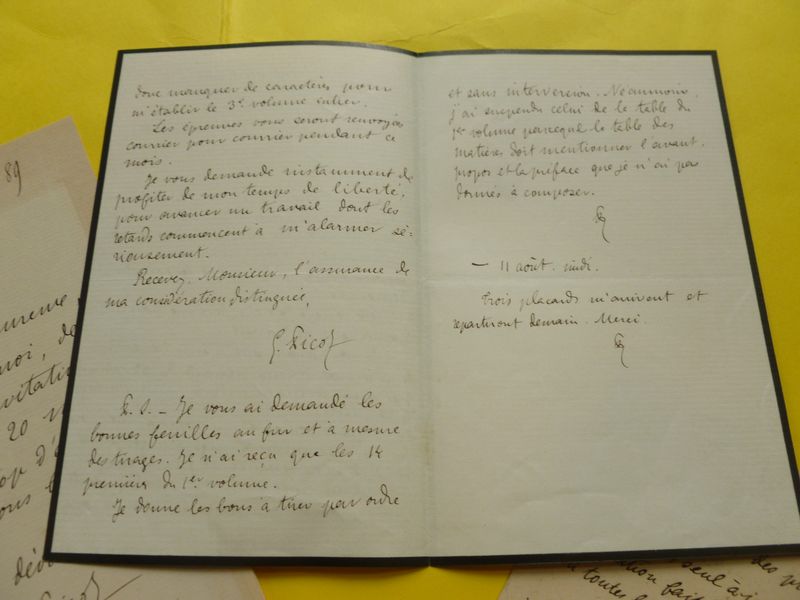 donc manquer de caractères pour
m'établir le 3e volume entier.
Les épreuves vous seront renvoyées
courrier pour courrier pendant ce
mois.
Je vous demande instamment de
profiter de mon temps de liberté,
pour avancer un travail dont les
retards commencent à m'alarmer sé-
rieusement.
Recevez, Monsieur, l'assurance de
ma considération distinguée,
G. Picot
P. S. – Je vous ai demandé les
bonnes feuilles au fur et à mesure
des tirages. Je n'ai reçu que les 14
premières du 1er volume.
Je donne les bons à tirer par ordre
et sans interversion. Néanmoins,
j'ai suspendu celui de la table du
1er volume parceque la table des
matières doit mentionner l'avant-
propos et la préface que je n'ai pas
donnés à composer.
— 11 août. midi.
Trois placards m'arrivent et
repartiront demain. Merci.
89
moi, de
20
Picot
toutes